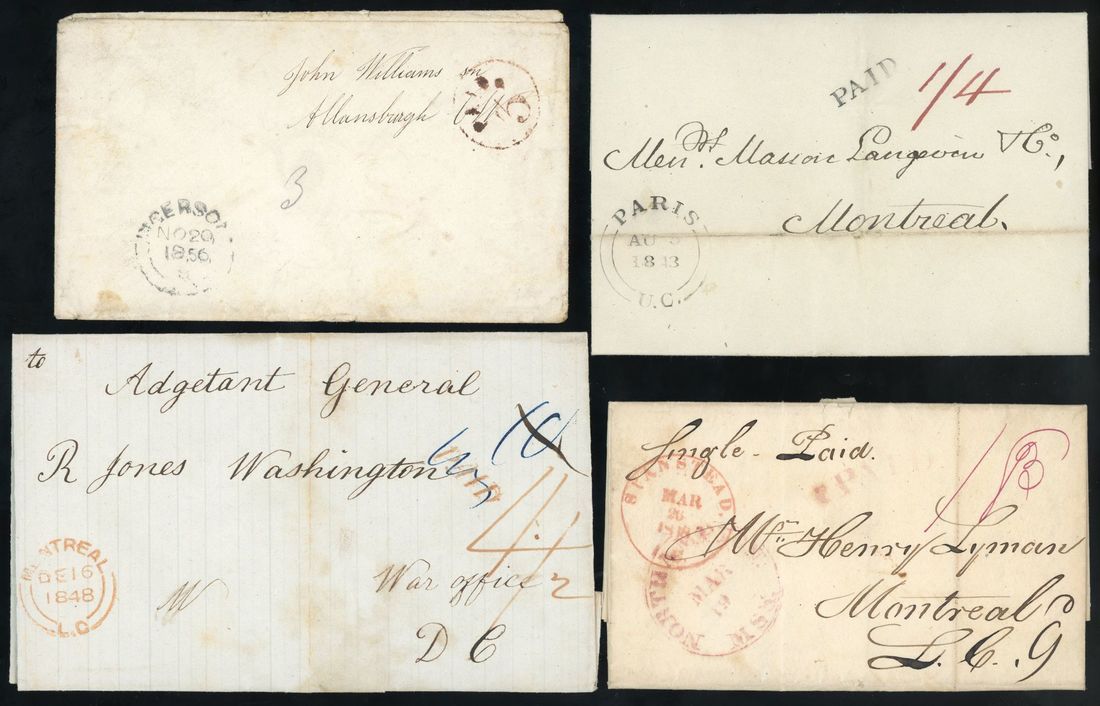 John Williams
Allansburgh
3
INGERSOL
NO 20
1856
PAID
1/4
Messrs. Masson Langevin & Co.,
Montreal.
PARIS
AU
U.C.
to
Adgetant General
R Jones Washington
PAID
10
4 1/2
War office
D C
MONTREAL
DE 16
1848
L.C
Single - Paid.
PAID
STANSTEAD.
MAR
26
Mr. Henry Lyman
Montreal
L. C.
NORTH
MAR
19